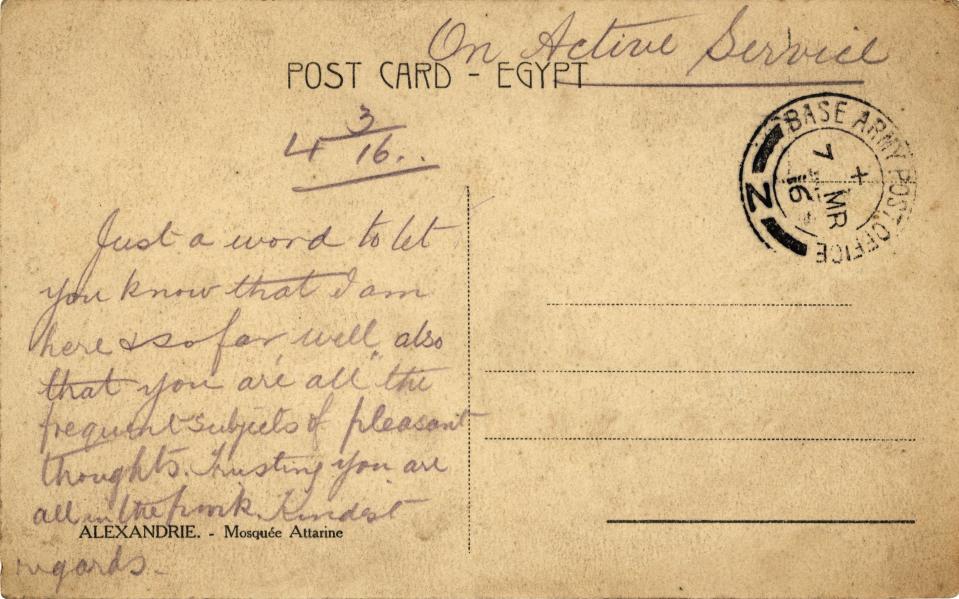 On Active Service
POST CARD - EGYPT
4 3/16..
BASE ARMY POST OFFICE
Z
7 MR 16
Just a word to let
you know that I am
here & so far well, also
that you are all the
frequent subjects of pleasant
thoughts. Trusting you are
all in the pink. Kindest
regards.
ALEXANDRIE. - Mosquée Attarine